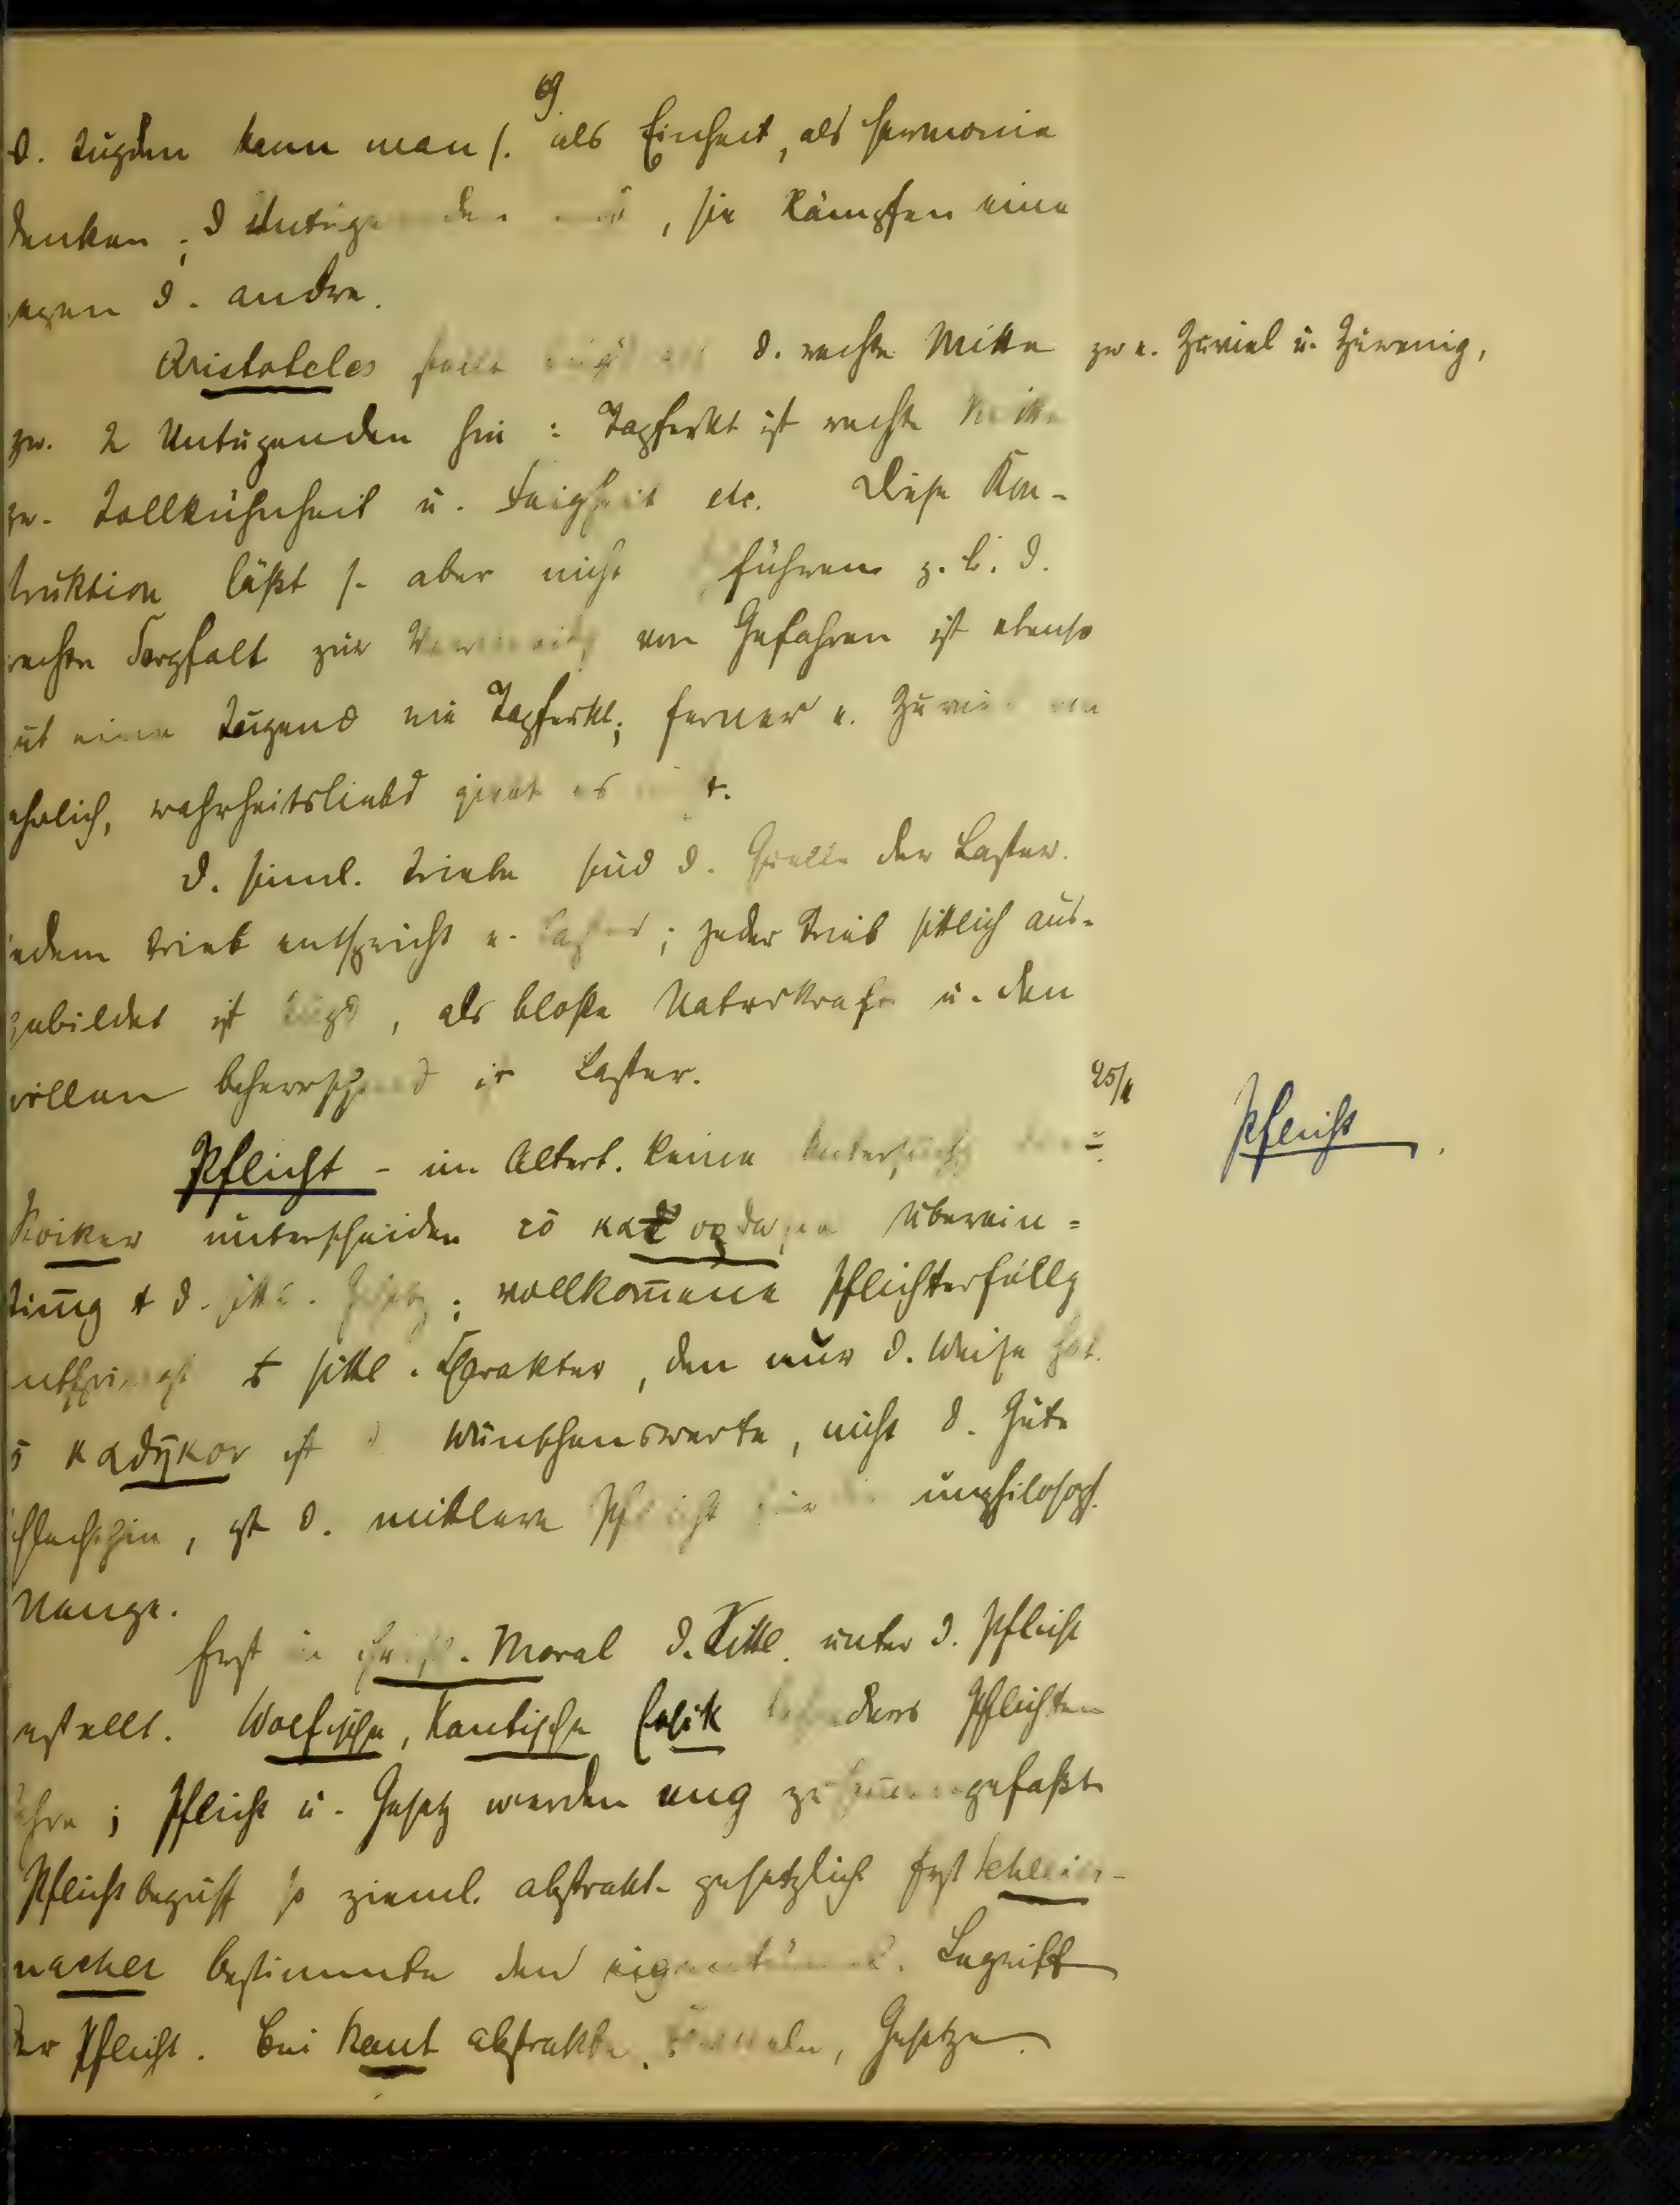 69.
D. Tugden kann man s. als Einheit, als Harmonie
denken; d Untuge nden , sie kämpfen eine
egen d. andre.
Aristoteles d. rechte Mitte zw e. Zuviel u. Zuwenig,
zw. 2 Untugenden hin : Tapferkt ist rechte Mitte
zw. Tollkühnheit u. Feigheit etc. Diese Kon-
truktion läßt s. aber nicht führen z. b. d.
rechte Sorgfalt zur Vermeidg von Gefahren ist ebenso
ut eine Tugend wie Tapferkt; ferner e. Zuviel von
ehrlich, wahrheitsliebd giebt es
D. sinnl. Triebe sind d. Quelle der Laster.
edem Trieb entspricht e. Laster; jeder Trieb sittlich aus-
gebildet ist Tugd, als bloße Naturkraft u. den
willen beherrschend ist Laster.
25/1
Pflicht - im Altert. keine Untersuchg
Pflicht.
Stoiker unterscheiden τό Überein=
d. Gesetz; vollkom̅ene Pflichterfüllg
sittl. Charakter, den nur d. Weise hat.
καθῆκον ist d Wünschenswerte, nicht d. Gute
chlechthin, ist d. mittlere Pflicht für unphilosoph.
Menge.
Erst in christl. Moral d. Sittl. unter d. Pflicht
estellt. Wolfische, Kantische Ethik besonders Pflichten
ehre; Pflicht u. Gesetz werden eng zusammengefaßt
Pflichtbegriff so zieml. abstrakt-gesetzlich Erst Schleier-
macher bestimmte den eigentüml. Begriff
der Pflicht. Bei Kant abstrakte Formeln, Gesetze.